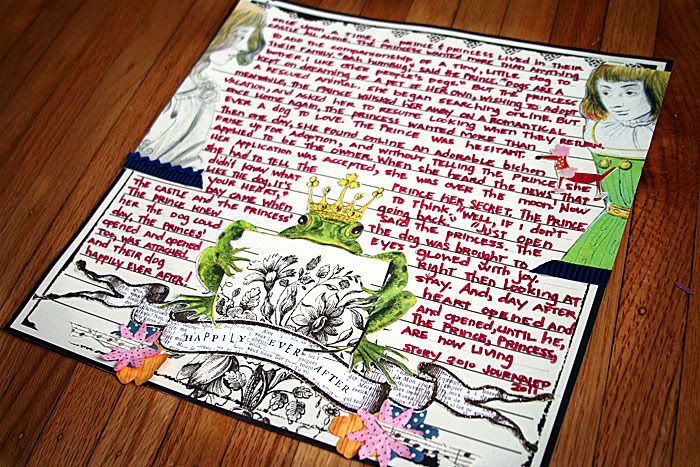 Once upon a time, a prince & princess lived in their
castle, all alone. The princess wanted more than anything
to add the companionship of a tiny, little dog to
their family. "Bah humbug," said the prince. "Dogs are a
bother. I like other people's dogs." But the princess
kept on dreaming of a pet of her own, wishing to adopt
a rescued animal. She began searching online. But
meanwhile, the prince whisked her away on a romantical
vacation and asked her to decline looking. When they return
ed home again the princess wanted more than
ever a dog to love. The prince was hesitant.
Then one day, she found online an adorable bichon
up for adoption, and without telling the prince, she
applied to be the owner. When she heard the news that
application was accepted, she was over the moon. Now
she had to tell the prince her secret. The prince
didn't know what to think. "Well, if I don't
like the dog, it's going back." "Just open
your heart," said the princess. The
day came when the dog was brought to
the castle and the princess' eyes glowed with joy.
The prince knew right then looking at
her the dog could stay. And, day after
day, the princes' heart opened and
opened and opened and opened, until he,
too, was attached. The prince, princess,
and their dog are now living
happily ever after!
Story 2010 Journaled
2011
HAPPILY EVER AFTER